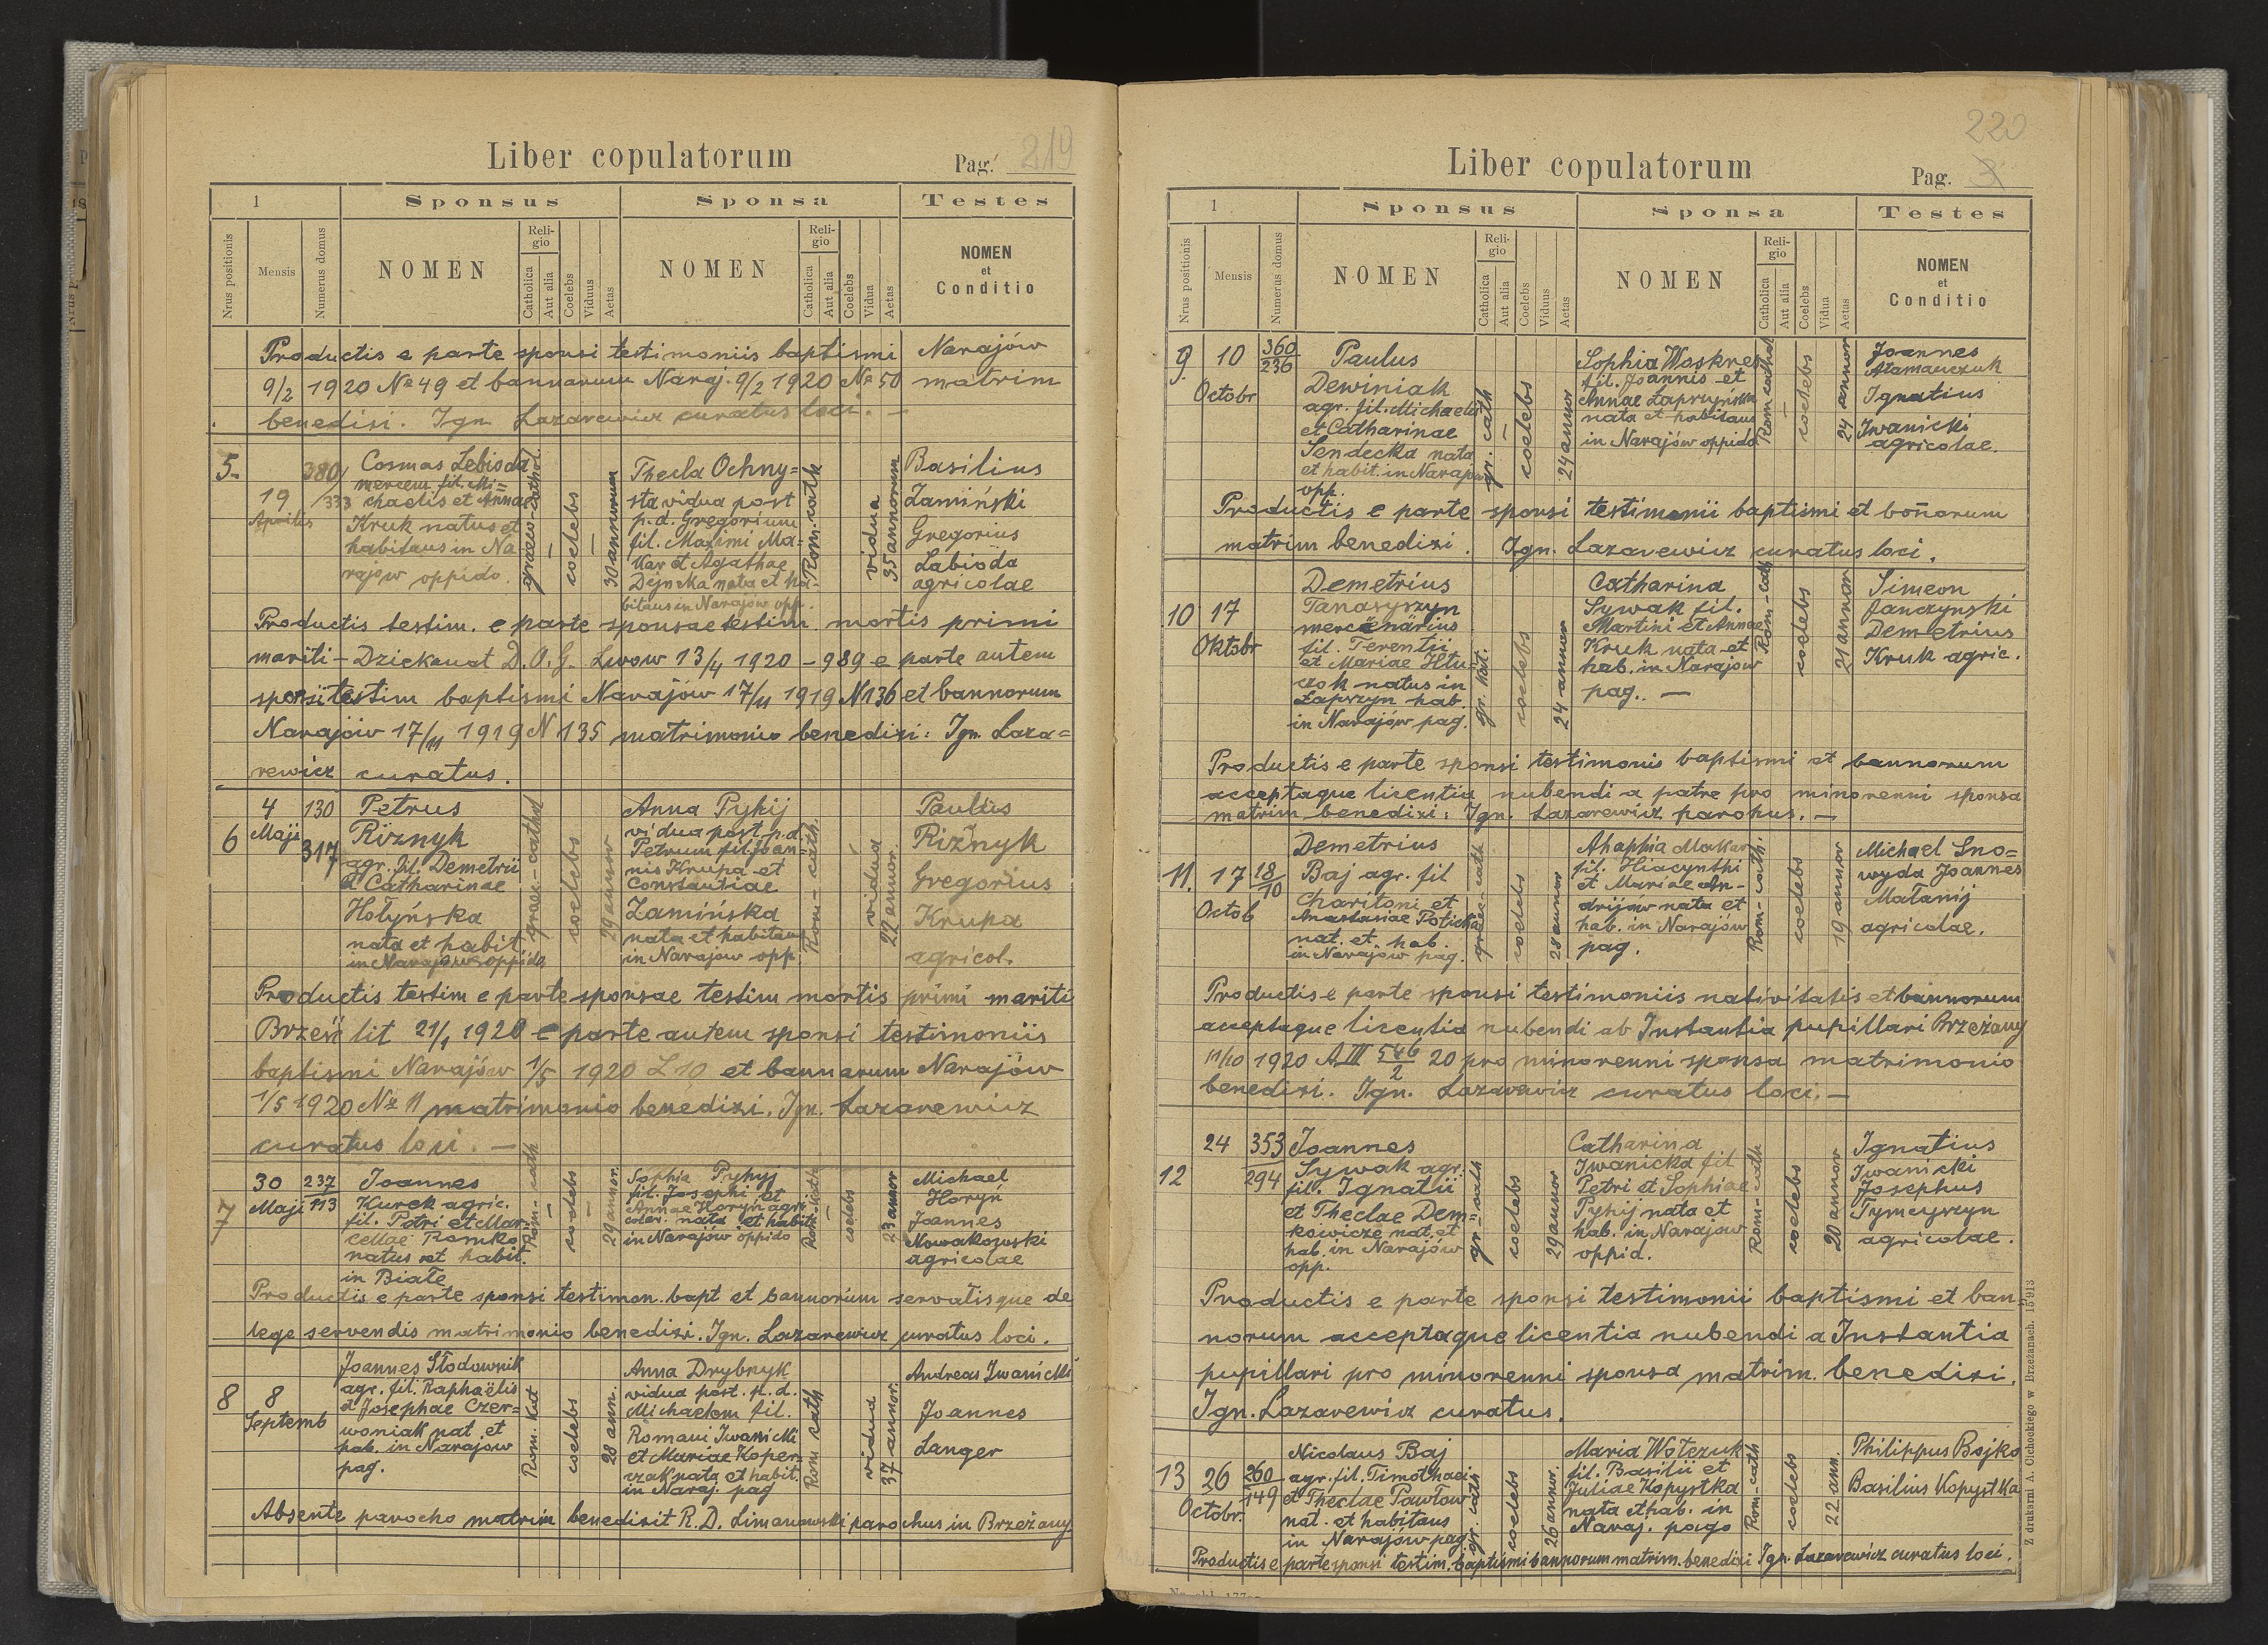 Liber copulatorum
Pag. 219
1
Sponsus
Sponsa
Testes
Nrus positionis
Mensis
Numerus domus
NOMEN
Religio
Catholica
Aut alia
Coelebs
Viduus
Aetas
NOMEN
Religio
Catholica
Aut alia
Coelebs
Vidua
Aetas
NOMEN
et
Conditio
Productis e parte sponsi testimoniis baptismi Narajów
9/2 1920 № 49 et bannorum Naraj. 9/2 1920 № 50 matrim
benedixi. Ign. Lazarewicz curatus loci. —
5.
19
Aprilis
380/
/333
Cosmas Lebioda
mercen. fil. Mi=
chaelis et Annae
Kruk natus et
habitans in Na
rajów oppido.
graeco-cathol.
—
coelebs
—
30 annorum
Thecla Ochny=
sta vidua post
p. d. Gregorium
fil. Maximi Ma=
kar et Agathae
Dejneka nata et ha
bitans in Narajów opp.
Rom.-cath
vidua
35 annorum
Basilius
Zamiński
Gregorius
Labioda
agricolae
Productis testim. e parte sponsae testim. mortis primi
mariti - Dziekanat D. O. G. Lwow 13/4 1920 - 989 e parte autem
sponsi testim baptismi Narajów 17/11 1919 N 136 et bannorum
Narajów 17/11 1919 N 135 matrimonio benedixi: Ign. Laza=
rewicz curatus.
6
4
Maji
130
317
Petrus
Riznyk
agr. fil. Demetrii
et Catharinae
Hołyńska
nata et habit
in Narajow oppido
graec-cathol
coelebs
29 annor
Anna Pyhij
vidua post p.d.
Petrum fil. Joan=
nis Krupa et
Constantiae
Zamińska
nata et habitans
in Narajow opp.
Rom-cath.
vidua
22 annor.
Paulus
Riżnyk
Gregorius
Krupa
agricol.
Productis testim e parte sponsae testim mortis primi mariti
Brześć lit 21/1 1920 e parte autem sponsi testimoniis
baptismi Narajów 1/5 1920 L 10 et bannorum Narajów
1/5 1920 Nr 11 matrimonio benedixi. Ign. Lazarewicz
curatus loci. —
7
30
Maji
237
113
Joannes
Kurek agric.
fil. Petri et Mar
cellae Romko
natus et habit.
in Białe
Rom-cath
—
coelebs
—
29 annor.
Sophia Pyhyj
fil. Josephi et
Annae Horyn agri
colar. nata et habit
in Narajow oppido
Rom-cath
—
coelebs
23 annor
Michael
Horyn
Joannes
Nowakowski
agricolae
Productis e parte sponsi testimon. bapt et bannorum servatisque de
lege servendis matrimonio benedixi. Ign. Lazarewicz curatus loci.
8
8
Septemb
Joannes Słodownik
agr. fil. Raphaëlis
et Josephae Czer=
woniak nat. et
hab. in Narajow
pag.
Rom. Kat
coelebs
28 ann.
Anna Drybnyk
vidua post. p. d.
Michaelem fil.
Romani Iwanicki
et Mariae Koper
czak nata et habit.
in Naraj. pag
Rom cath
vidua
37 annor.
Andreas Iwanicki
Joannes
Langer
Absente parocho matrim benedixit R. D. Limanowski parochus in Brzeżany.
Liber copulatorum
220
Pag. 3
1
Sponsus
Sponsa
Testes
Nrus positionis
Mensis
Numerus domus
NOMEN
Religio
Catholica
Aut alia
Coelebs
Viduus
Aetas
NOMEN
Religio
Catholica
Aut alia
Coelebs
Vidua
Aetas
NOMEN
et
Conditio
9.
10
Octobr
360
236
Paulus
Dewiniak
agr. fil. Michaelis
et Catharinae
Sendecka nata
et habit. in Narajow
opp.
gr. cath
—
coelebs
24 annor
Sophia Woskres
fil. Joannis et
Annae Łapszyńska
nata et habitans
in Narajów oppido
Rom cathol
—
coelebs
24 annor
Joannes
Atamanczuk
Ignatius
Iwanicki
agricolae.
Productis e parte sponsi testimonii baptismi et bonorum
matrim benedixi. Ign. Lazarewicz curatus loci.
10
17
Oktobr
Demetrius
Tanasyszyn
mercenarius
fil. Terentii
et Mariae Htu=
czok natus in
Łapszyn hab.
in Narajów pag.
gr. kat.
coelebs
24 annor
Catharina
Sywak fil.
Martini et Annae
Kruk nata et
hab. in Narajow
pag. —
Rom-cath
coelebs
21 annor
Simeon
Janczynski
Demetrius
Kruk agric.
Productis e parte sponsi testimonis baptismi et bannorum
acceptaque licentia nubendi a patre pro minorenni sponsa
matrim benedixi: Ign. Lazarewicz parohus. —
11.
17
Octob
18
10
Demetrius
Baj agr. fil
Charitoni et
Anastasiae Potichа
nat. et hab.
in Narajów pag.
graec-cath
coelebs
28 annor
Ahaphia Makar
fil. Hiacynthi
et Mariae An-
drijów nata et
hab. in Narajów
pag.
Rom-cath
coelebs
19 annor
Michael Sno=
wyda Joannes
Małanij
agricolae.
Productis e parte sponsi testimoniis nativitatis et bannorum
acceptaque licentia nubendi ab Instantia pupillari Brzeżany
11/10 1920 A III 546/2 20 pro minorenni sponsa matrimonio
benedixi. Ign. Lazarewicz curatus loci. —
12
24
353
294
Joannes
Sywak agr.
fil. Ignatii
et Theclae Dem=
kowicze nat. et
hab. in Narajów
opp.
gr-cath
coelebs
29 annor
Catharina
Iwanicka fil
Petri et Sophiae
Pyhij nata et
hab. in Narajow
oppid.
Rom-cath
coelebs
20 annor
Ignatius
Iwanicki
Josephus
Tymcyszyn
agricolae.
Productis e parte sponsi testimonii baptismi et ban=
norum acceptaque licentia nubendi a Instantia
pupillari pro minorenni sponsa matrim. benedixi.
Ign. Lazarewicz curatus.
13
26
Octobr.
260
149
Nicolaus Baj
agr. fil. Timothaei
et Theclae Pawłow
nat. et habitans
in Narajów pag.
gr. cath
coelebs
26 annor.
Maria Wołczuk
fil. Basilii et
Juliae Kopystka
nata et hab. in
Naraj. pago
Rom-cath
coelebs
22 ann.
Philippus Bojko
Basilius Kopystka
Productis e parte sponsi testim. baptismi bannorum matrim. benedixi Ign. Lazarewicz curatus loci.
Z drukarni A. Cichockiego w Brzeżanach. 15913